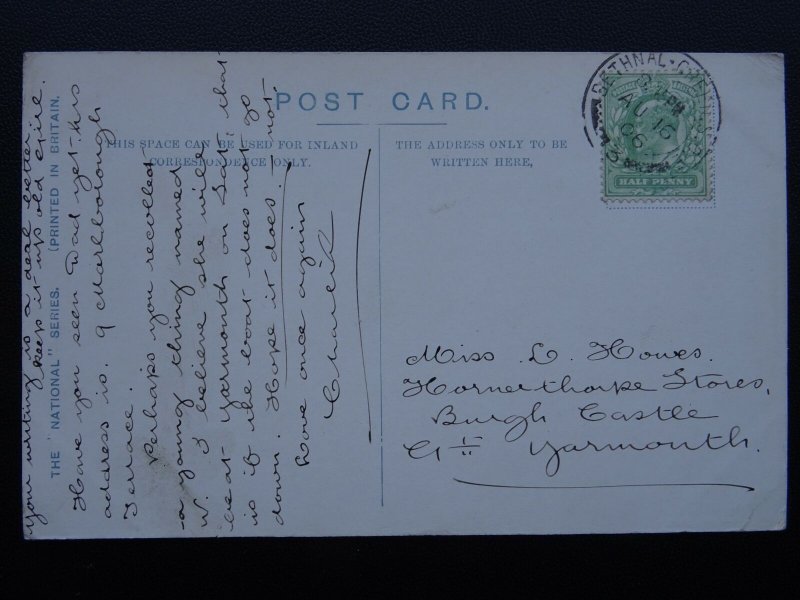 POST CARD.
THIS SPACE CAN BE USED FOR INLAND
CORRESPONDENCE ONLY.
THE ADDRESS ONLY TO BE
WRITTEN HERE,
THE "NATIONAL" SERIES. (PRINTED IN BRITAIN.
BETHNAL
AU 16
06
HALF PENNY
Miss L. Howes.
Hornerthorpe Stores,
Burgh Castle
Gt Yarmouth.
your writing is a deal better
keeps it up old girl.
Have you seen Dad yet his
address is. 9 Marlborough
Terrace.
Perhaps you recollect
a young thing named
W. I believe she will
be at Yarmouth on Sat; that
is if the boat does not go
down. Hope it does. not.
Love once again
Charlie